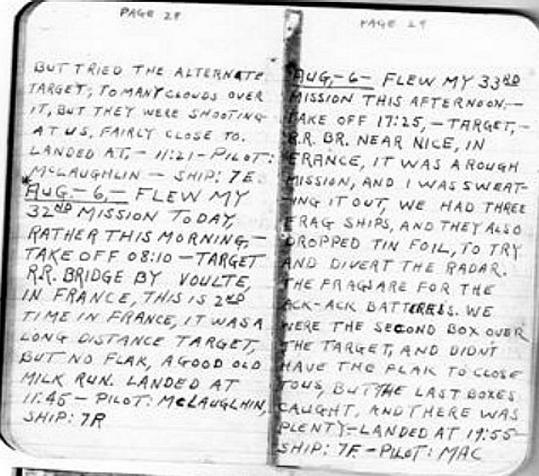 PAGE 28
BUT TRIED THE ALTERNATE
TARGET; TO MANY CLOUDS OVER
IT, BUT THEY WERE SHOOTING
AT US, FAIRLY CLOSE TO.
LANDED AT, - 11:21 - PILOT:
McLAUGHLIN - SHIP: 7E
*AUG. - 6, - FLEW MY
32ND MISSION TODAY,
RATHER THIS MORNING, -
TAKE OFF 08:10 - TARGET
R.R. BRIDGE BY VOULTE,
IN FRANCE, THIS IS 2ND
TIME IN FRANCE, IT WAS A
LONG DISTANCE TARGET,
BUT NO FLAK, A GOOD OLD
MILK RUN. LANDED AT
11:45 - PILOT: McLAUGLHIN,
SHIP: 7R
PAGE 29
AUG, - 6 - FLEW MY 33RD
MISSION THIS AFTERNOON. -
TAKE OFF 17:25, - TARGET, -
R.R. BR. NEAR NICE, IN
FRANCE, IT WAS A ROUGH
MISSION, AND I WAS SWEAT-
-ING IT OUT, WE HAD THREE
FRAG SHIPS, AND THEY ALSO
DROPPED TIN FOIL, TO TRY
AND DIVERT THE RADAR.
THE FRAGS ARE FOR THE
ACK-ACK BATTERIES. WE
WERE THE SECOND BOX OVER
THE TARGET, AND DIDN'T
HAVE THE FLAK TO CLOSE
TO US, BUT THE LAST BOXES
CAUGHT, AND THERE WAS
PLENTY - LANDED AT 19:55 -
SHIP: 7F - PILOT: MAC